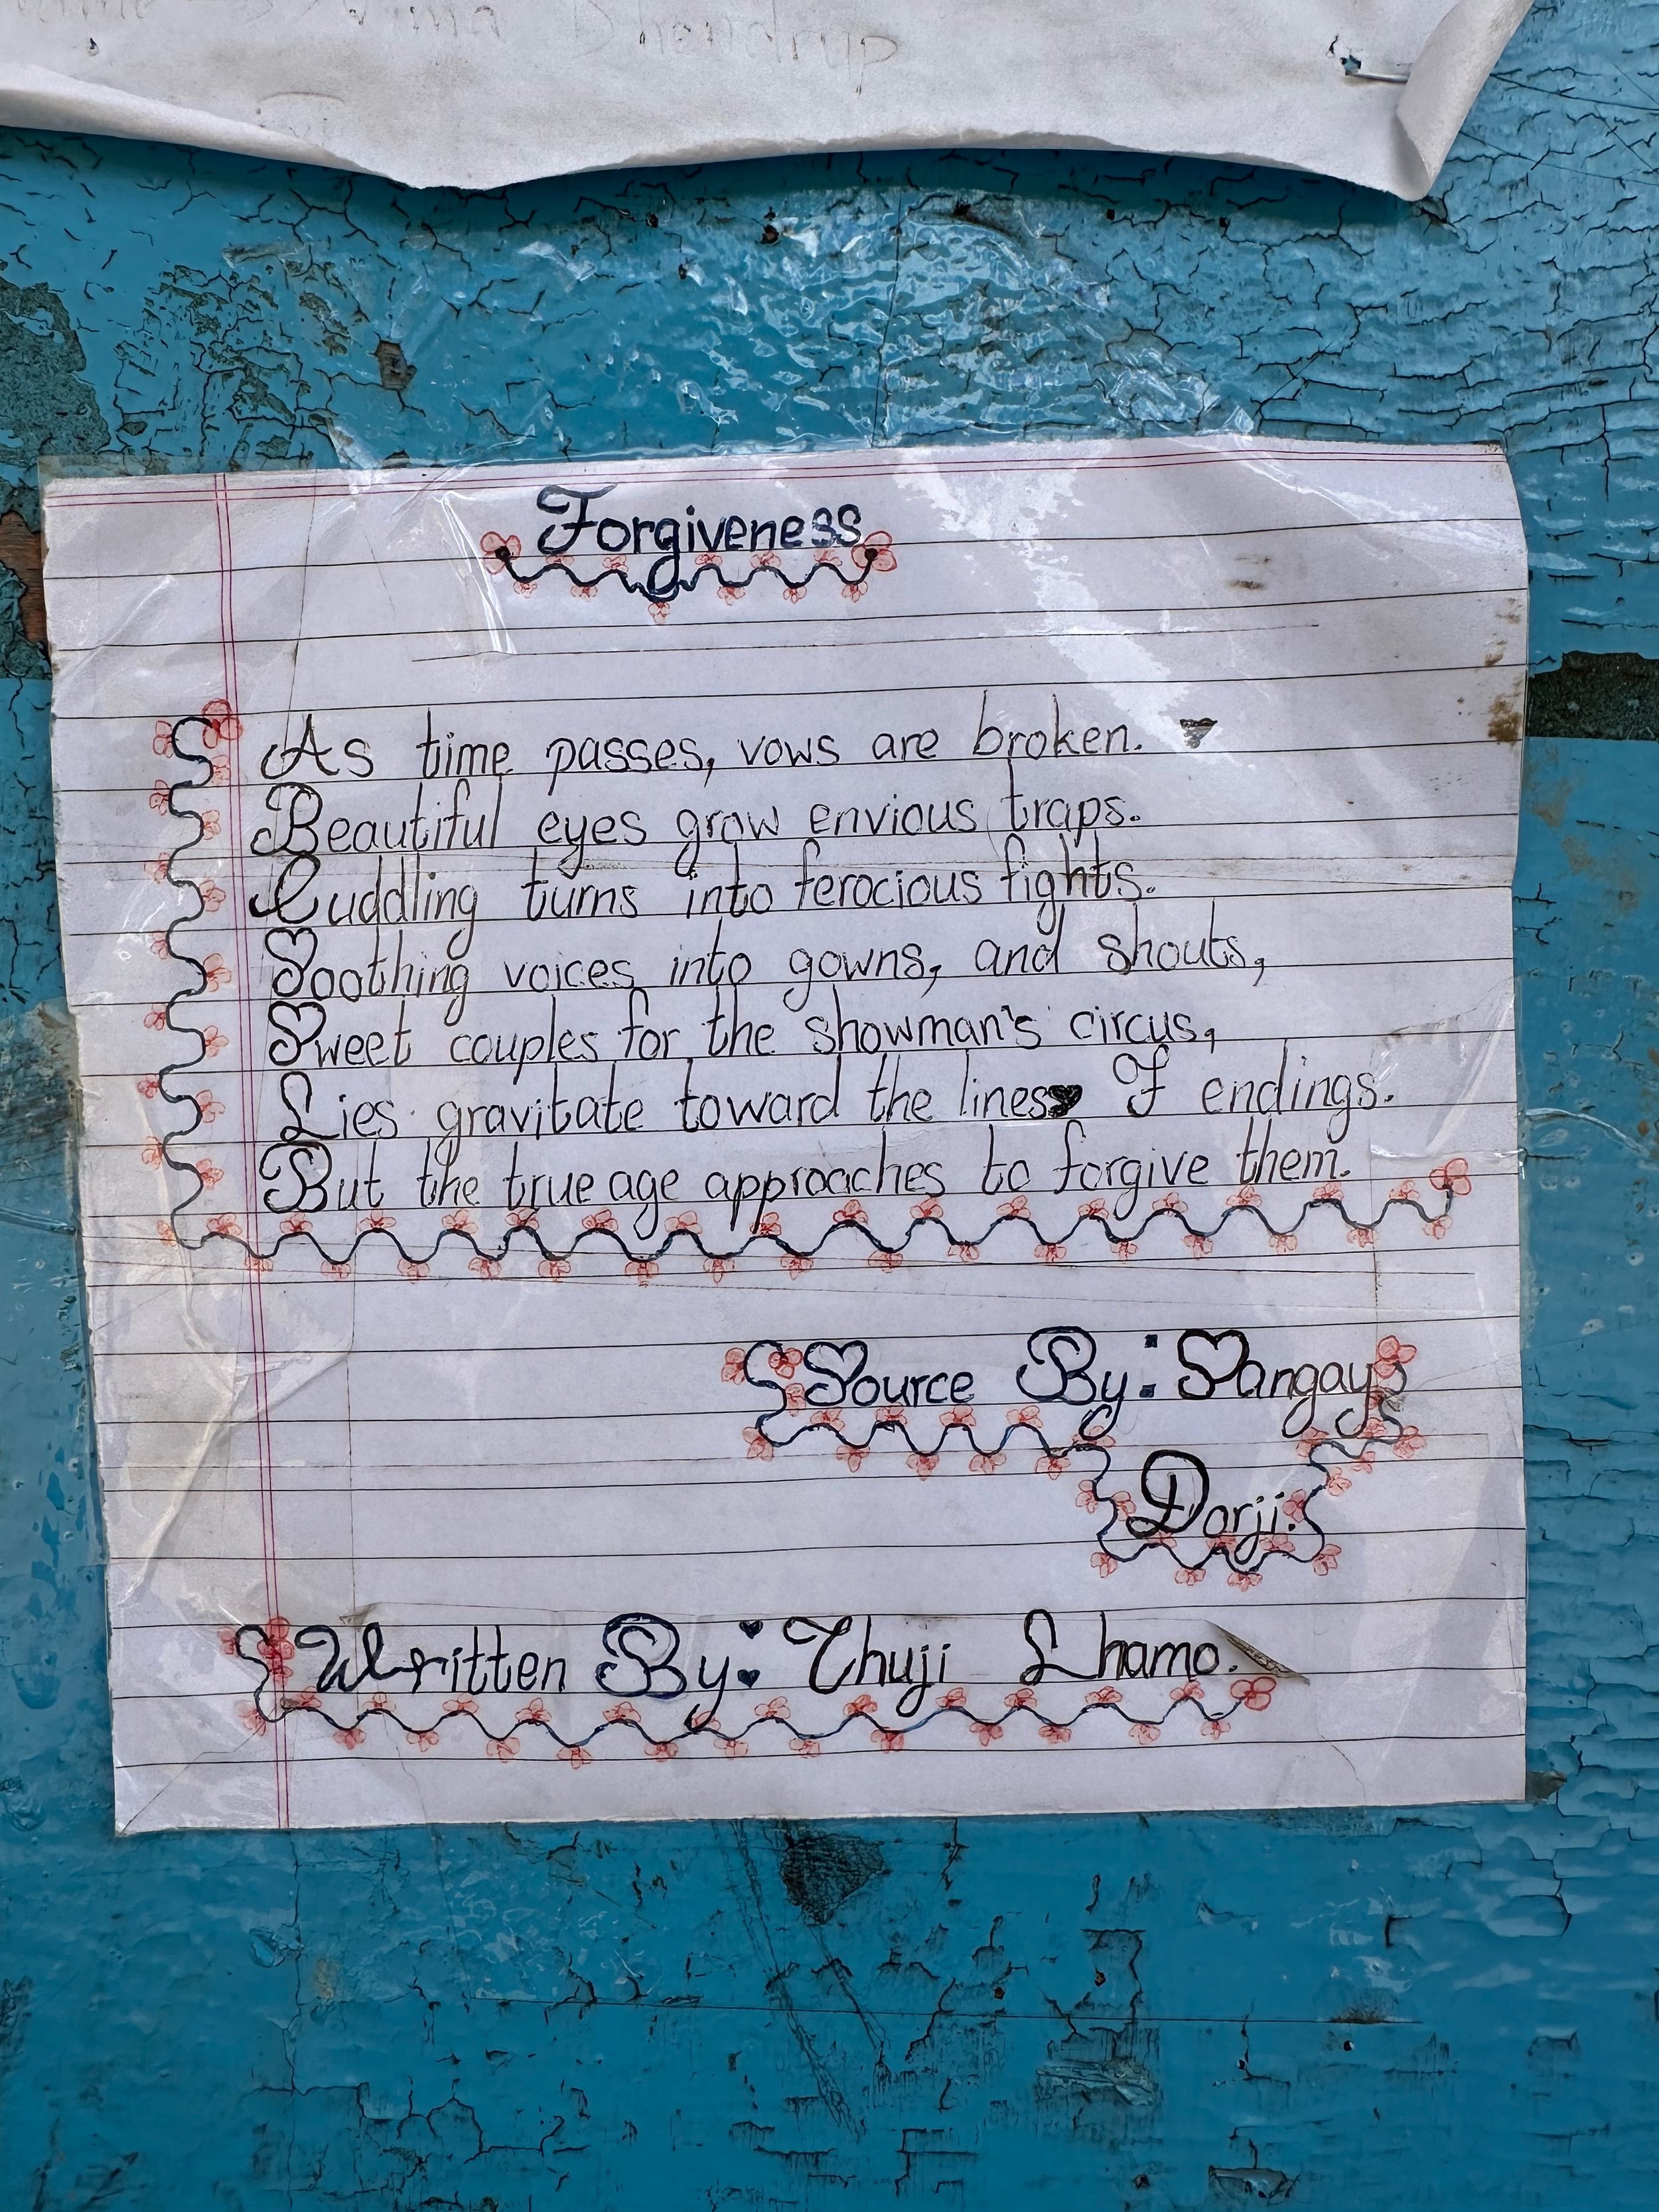 Forgiveness
As time passes, vows are broken.
Beautiful eyes grow envious traps.
Cuddling turns into ferocious fights.
Soothing voices into gowns, and shouts,
Sweet couples for the showman's circus,
Lies gravitate toward the lines F endings.
But the true age approaches to forgive them.
Source By: Sangay
Dorji.
Written By: Thuji Lhamo.